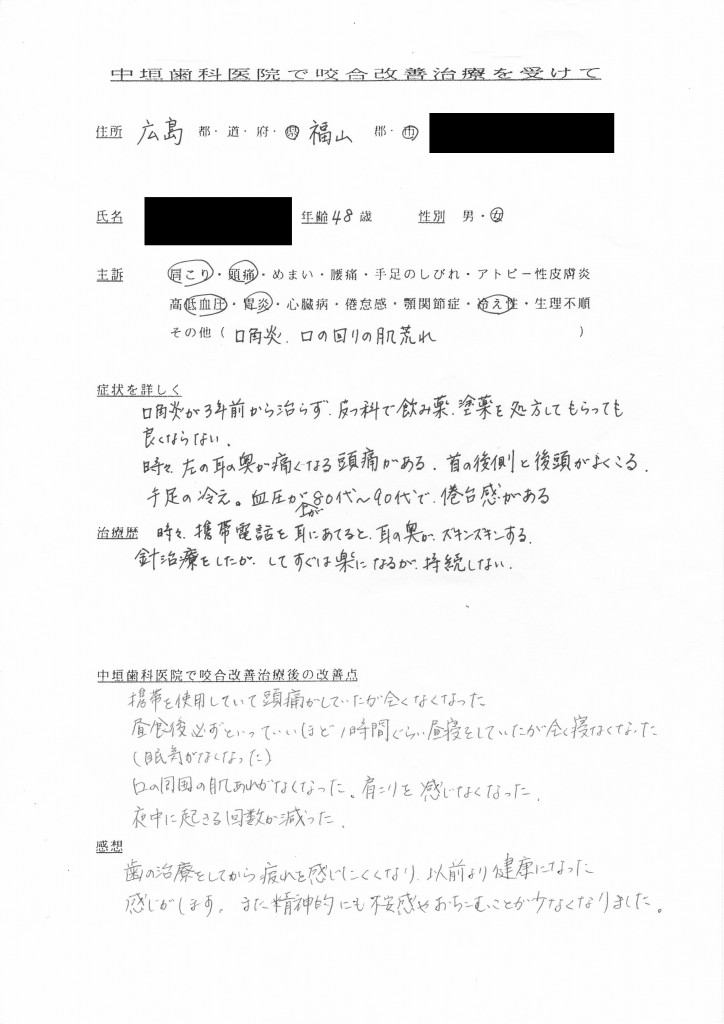 中垣歯科医院で咬合改善治療を受けて
住所 広島 都・道・府・県 福山 郡・市
氏名 年齢 48 歳 性別 男・女
主訴 肩こり・頭痛・めまい・腰痛・手足のしびれ・アトピー性皮膚炎
高低血圧・胃炎・心臓病・倦怠感・顎関節症・冷え性・生理不順
その他（口角炎、口の回りの肌荒れ）
症状を詳しく
口角炎が3年前から治らず、皮フ科で飲み薬、塗薬を処方してもらっても
良くならない。
時々、左の耳の奥が痛くなる頭痛がある。首の後側と後頭がよくこる。
手足の冷え。血圧が上が80代～90代で、倦怠感がある
治療歴 時々、携帯電話を耳にあてると、耳の奥が、ズキンズキンする。
針治療をしたが、してすぐは楽になるが、持続しない。
中垣歯科医院で咬合改善治療後の改善点
携帯を使用していて頭痛がしていたが全くなくなった
昼食後必ずといっていいほど1時間ぐらい昼寝をしていたが全く寝なくなった
（眠気がなくなった）
口の周囲の肌あれがなくなった。肩こりを感じなくなった。
夜中に起きる回数が減った。
感想
歯の治療をしてから疲れを感じにくくなり、以前より健康になった
感じがします。また精神的にも不安感やおちこむことが少なくなりました。